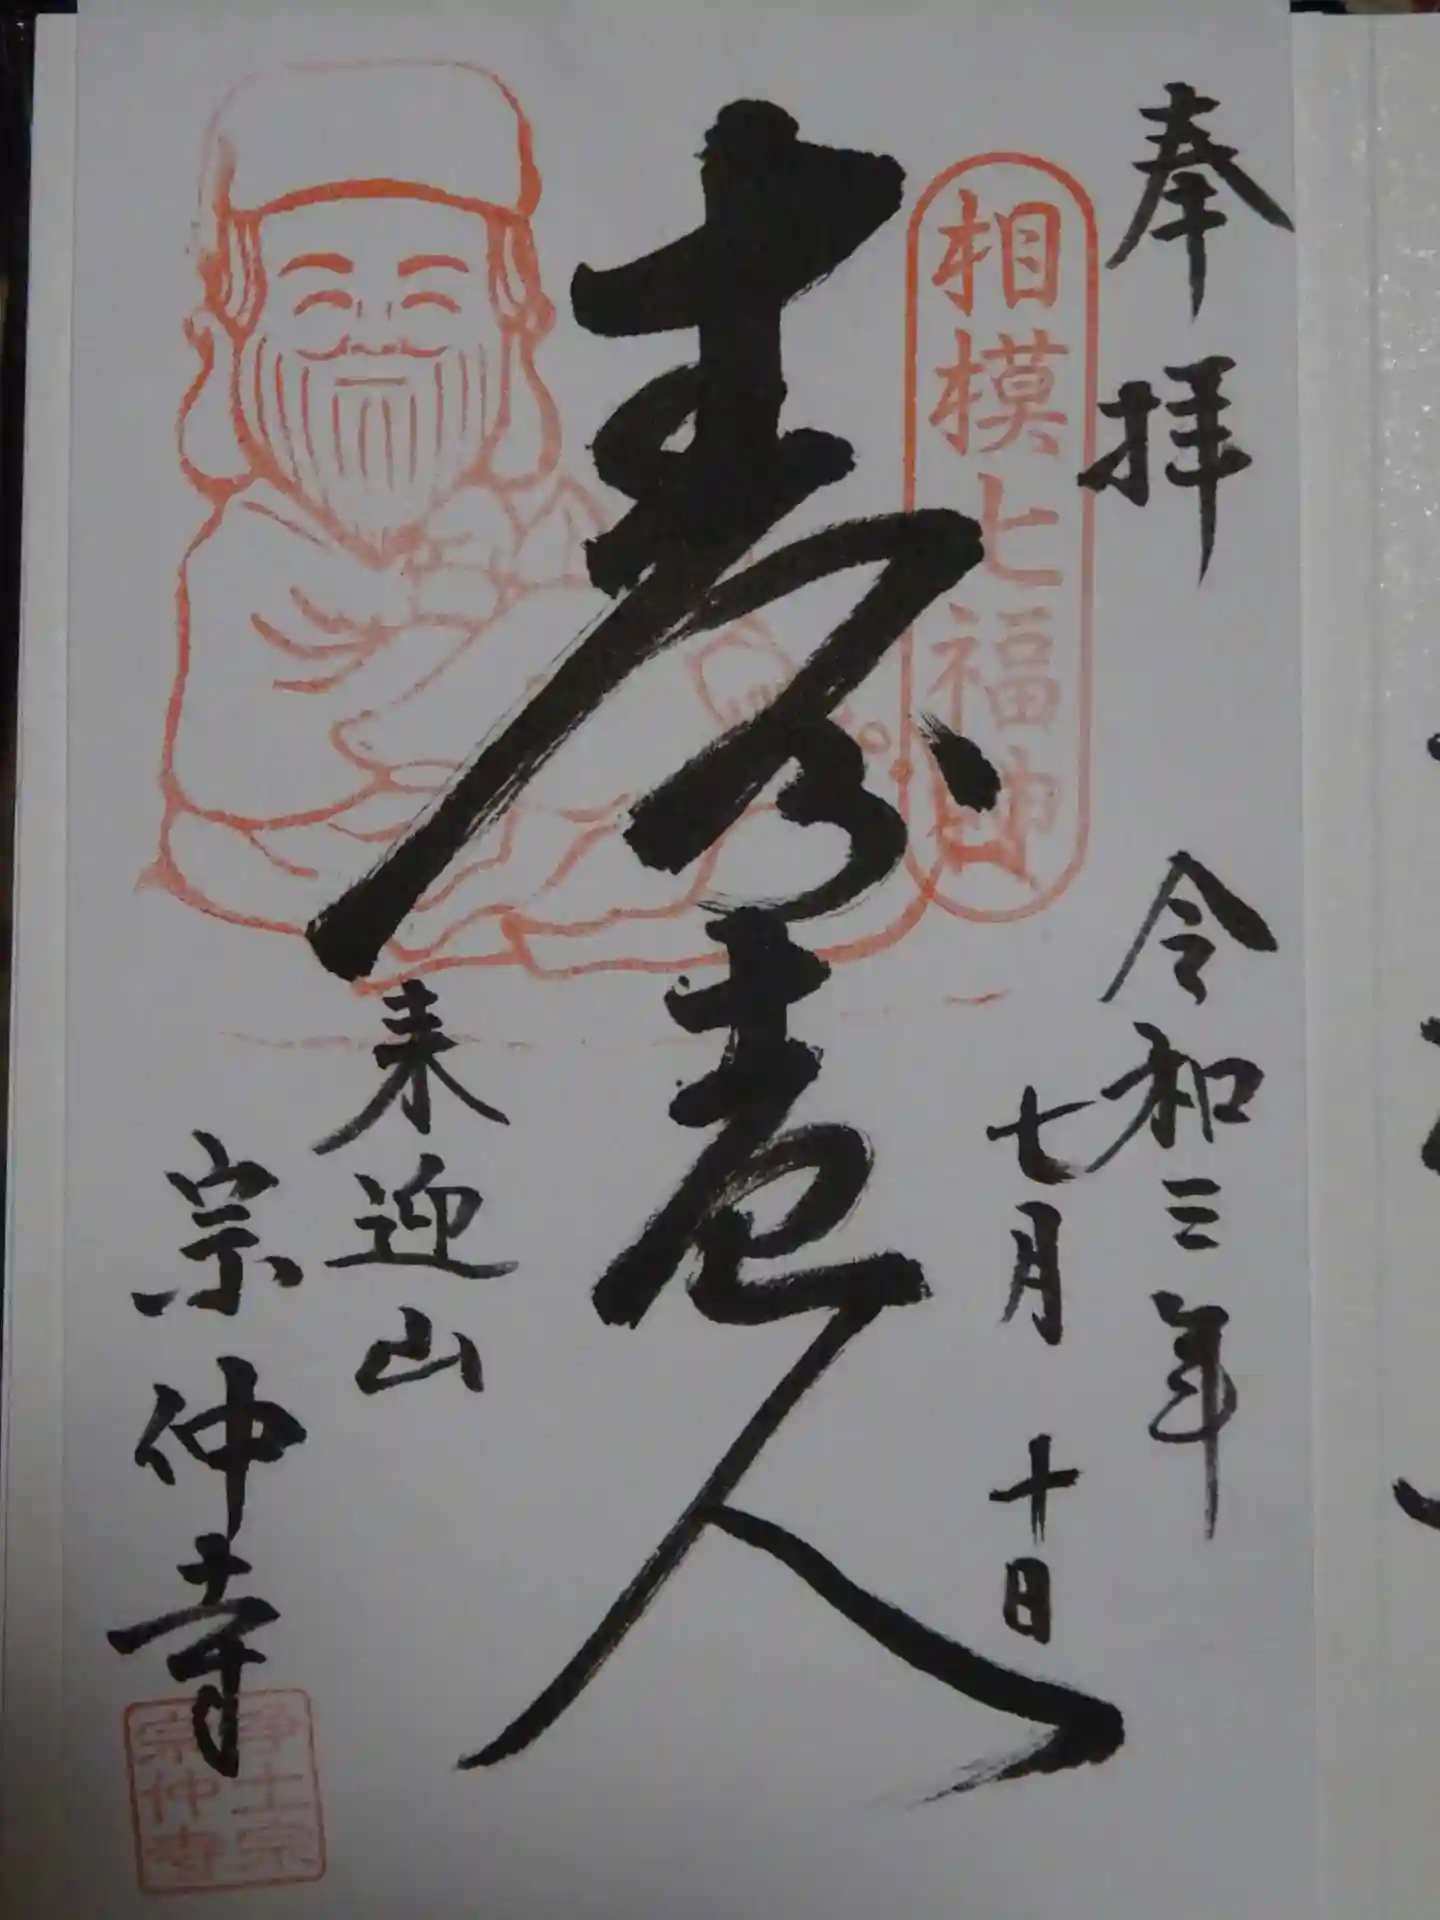 奉拝
令和三年
七月十日
相模七福神
寿老人
来迎山
宗仲寺
浄土宗
宗仲寺